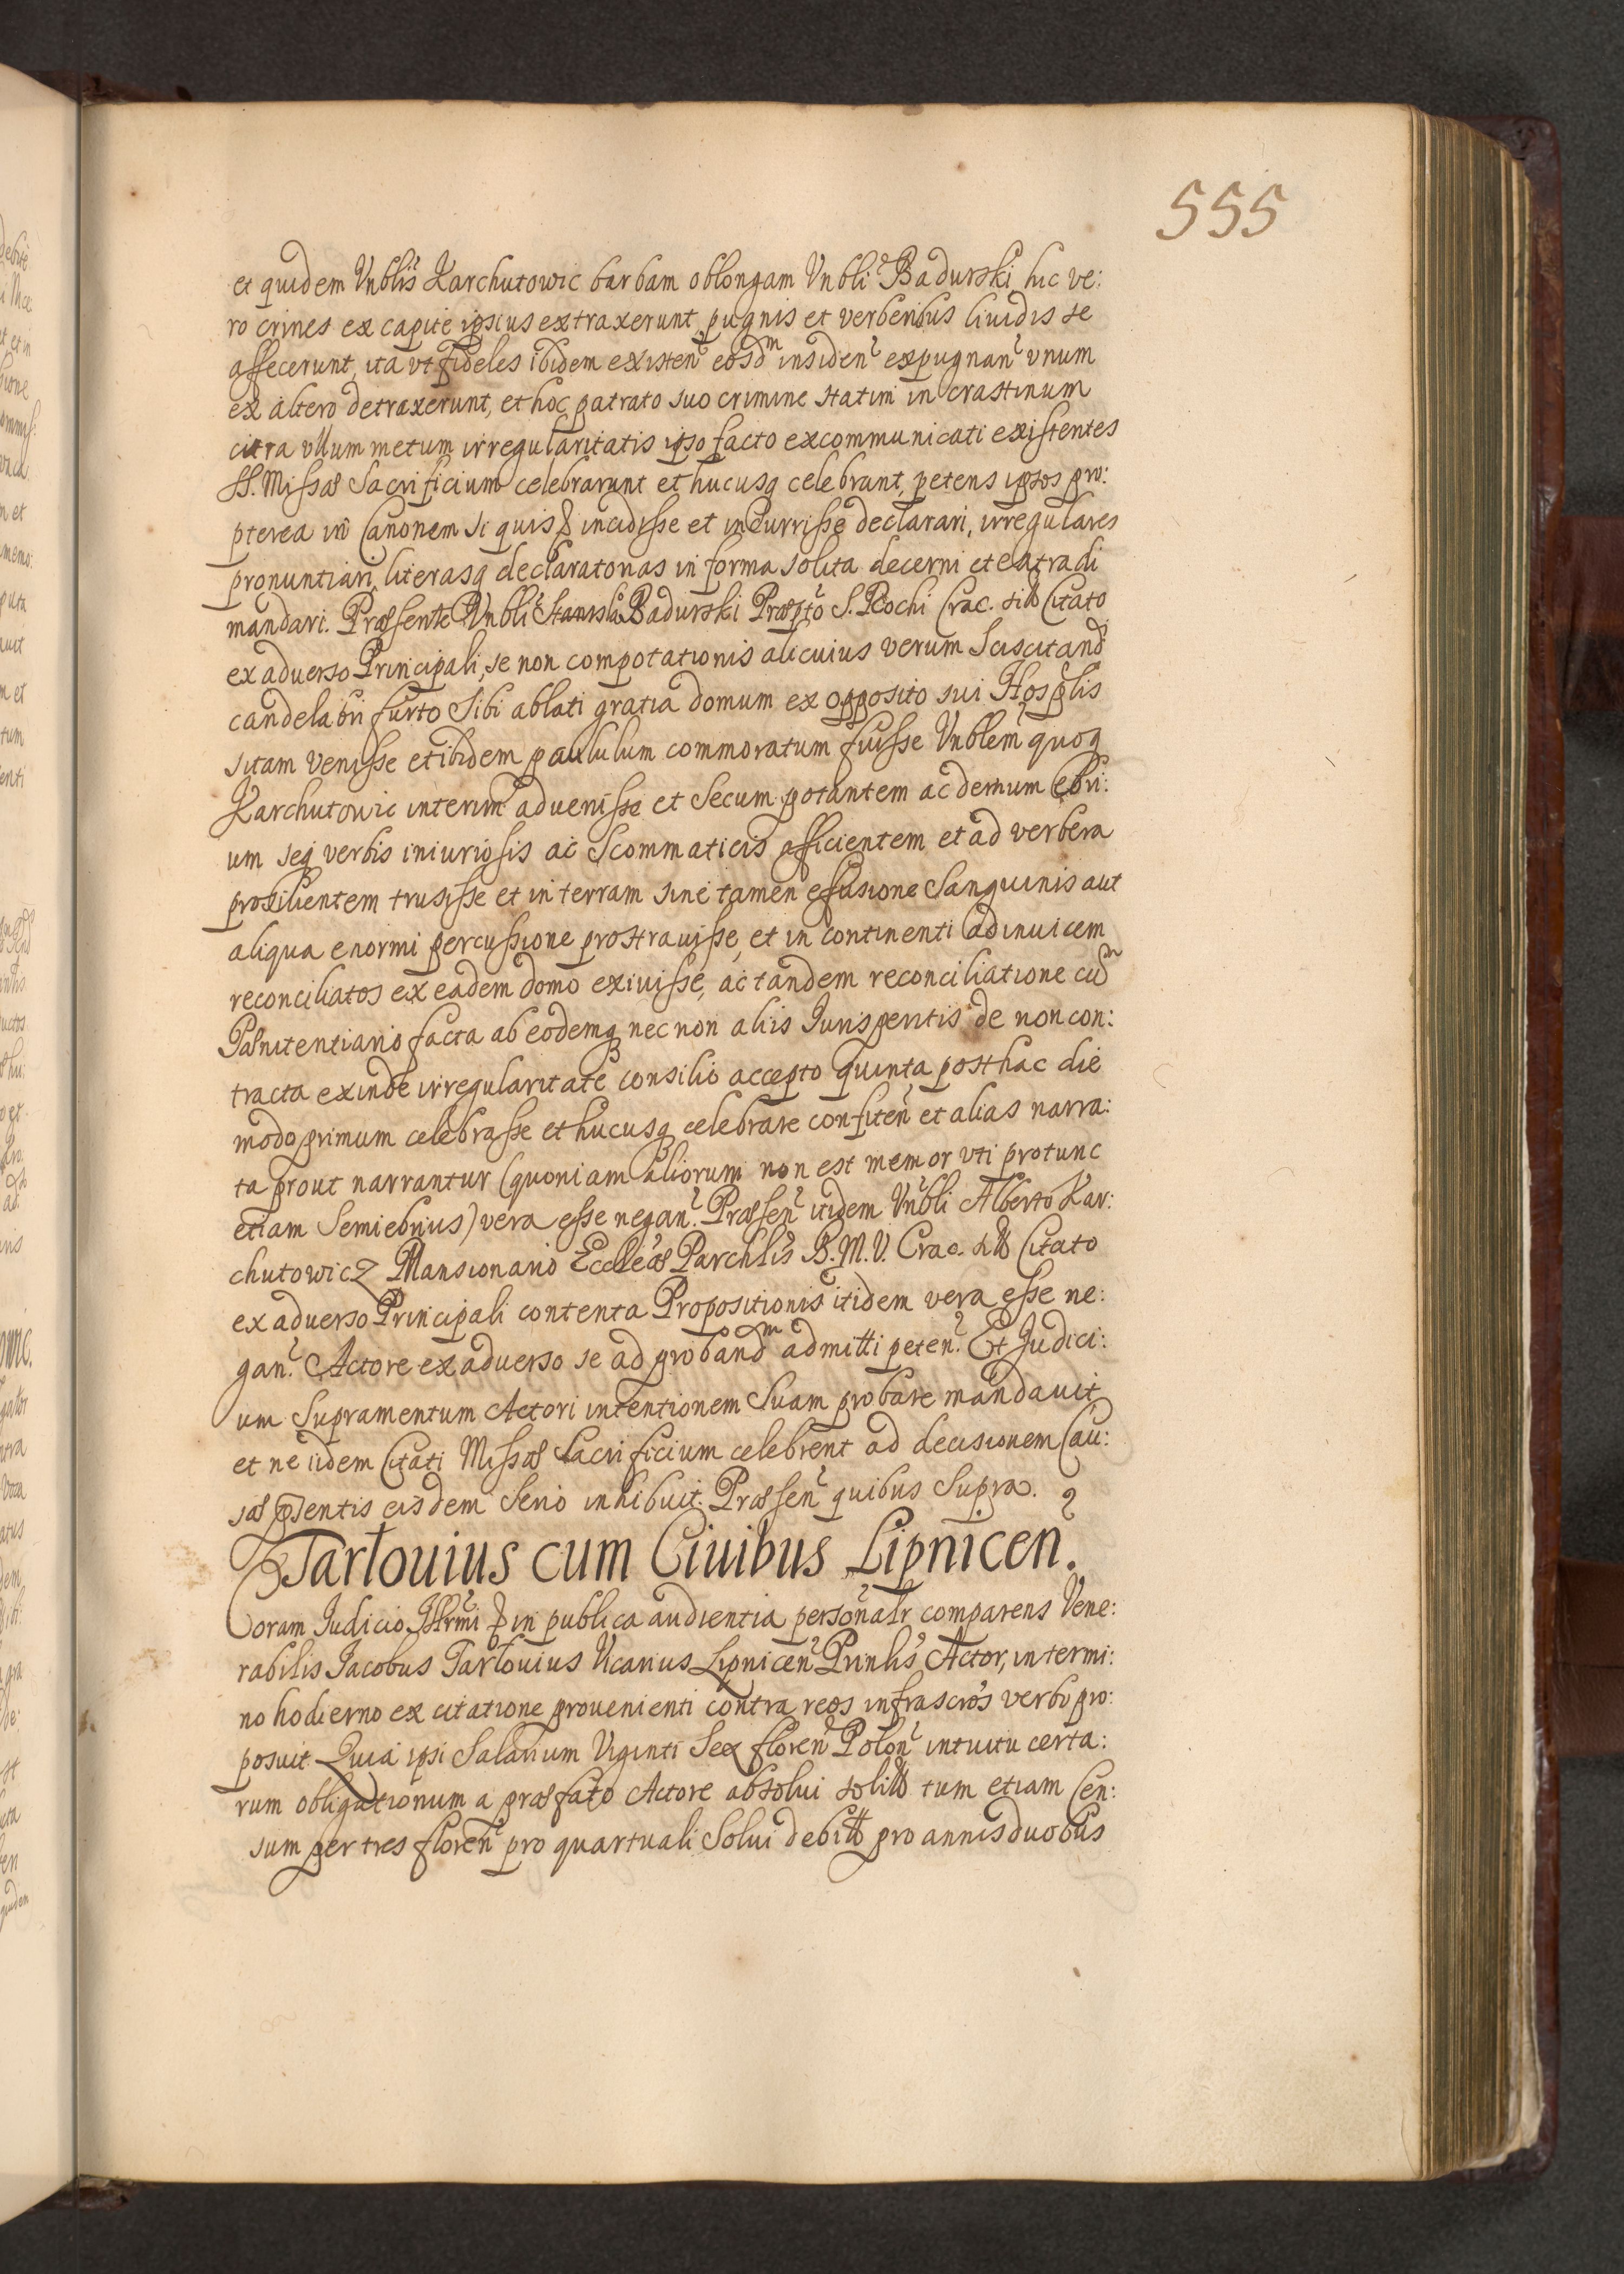 555
et quidem Vnblis Karchutowic barbam oblongam Vnbli Badurski hic ve:
ro crines ex capite ipsius extraxerunt, pugnis et verberibus liuidis se
affecerunt, ita vt fideles ibidem existen eosdm insiden expugnan vnum
ex altero detraxerunt, et hoc patrato suo crimine statim in crastinum
citra vllum metum irregularitatis ipso facto excommunicati existentes
SS. Missæ Sacrificium celebrarunt et hucusq celebrant, petens ipsos pro:
pterea in Canonem si quis & incidisse et incurrisse declarari, irregulares
pronuntiari, literasq declaratorias in forma solita decerni et extradi
mandari. Præsente Vnbli Stanisla Badurski Præpto S. Rochi Crac. Citato
ex aduerso Principali, se non compotationis alicuius verum Sciscitand
candelabri furto Sibi ablati gratia domum ex opposito sui Hosplis
sitam venisse et ibidem paululum commoratum fuisse Vnblem quoq
Karchutowic interim aduenisse et Secum potantem ac demum ebri:
um seq verbis iniuriosis ac Scommaticis afficientem et ad verbera
prosilientem trusisse et in terram sine tamen effusione Sanguinis aut
aliqua enormi percussione prostrauisse, et in continenti adinuicem
reconciliatos ex eadem domo exiuisse, ac tandem reconciliatione cum
Pænitentiario facta ab eodemq nec non aliis Iurisperitis de non con:
tracta exinde irregularitate consilio accepto quinta post hac die
modo primum celebrasse et hucusq celebrare confiten et alias narra:
ta prout narrantur (quoniam aliorum non est memor vti pro tunc
etiam Semiebrius) vera esse negan. Præsen itidem Vnbli Alberto Kar:
chutowicz Mansionario Eccleæ Parchlis B. M. V. Crac. Citato
ex aduerso Principali contenta Propositionis itidem vera esse ne:
gan. Actore ex aduerso se ad proband admitti peten. Et Judici:
um Supramentum Actori intentionem Suam probare mandauit,
et ne iidem Citati Missæ Sacrificium celebrent ad decisionem Cau:
sæ psentis eisdem Serio inhibuit. Præsen quibus Supra.
Tartouius cum Ciuibus Lipnicen.
Coram Iudicio Illrmi & in publica audientia personalr comparens Vene:
rabilis Jacobus Tartouius Vicarius Lipnicen Prinlis Actor, in termi:
no hodierno ex citatione prouenienti contra reos infrascros verbo pro:
posuit Quia ipsi Salarium Viginti Sex floren Polon intuitu certa:
rum obligationum a præfato Actore absolui tum etiam Cen:
sum per tres floren pro quartuali Solui pro annis duobus